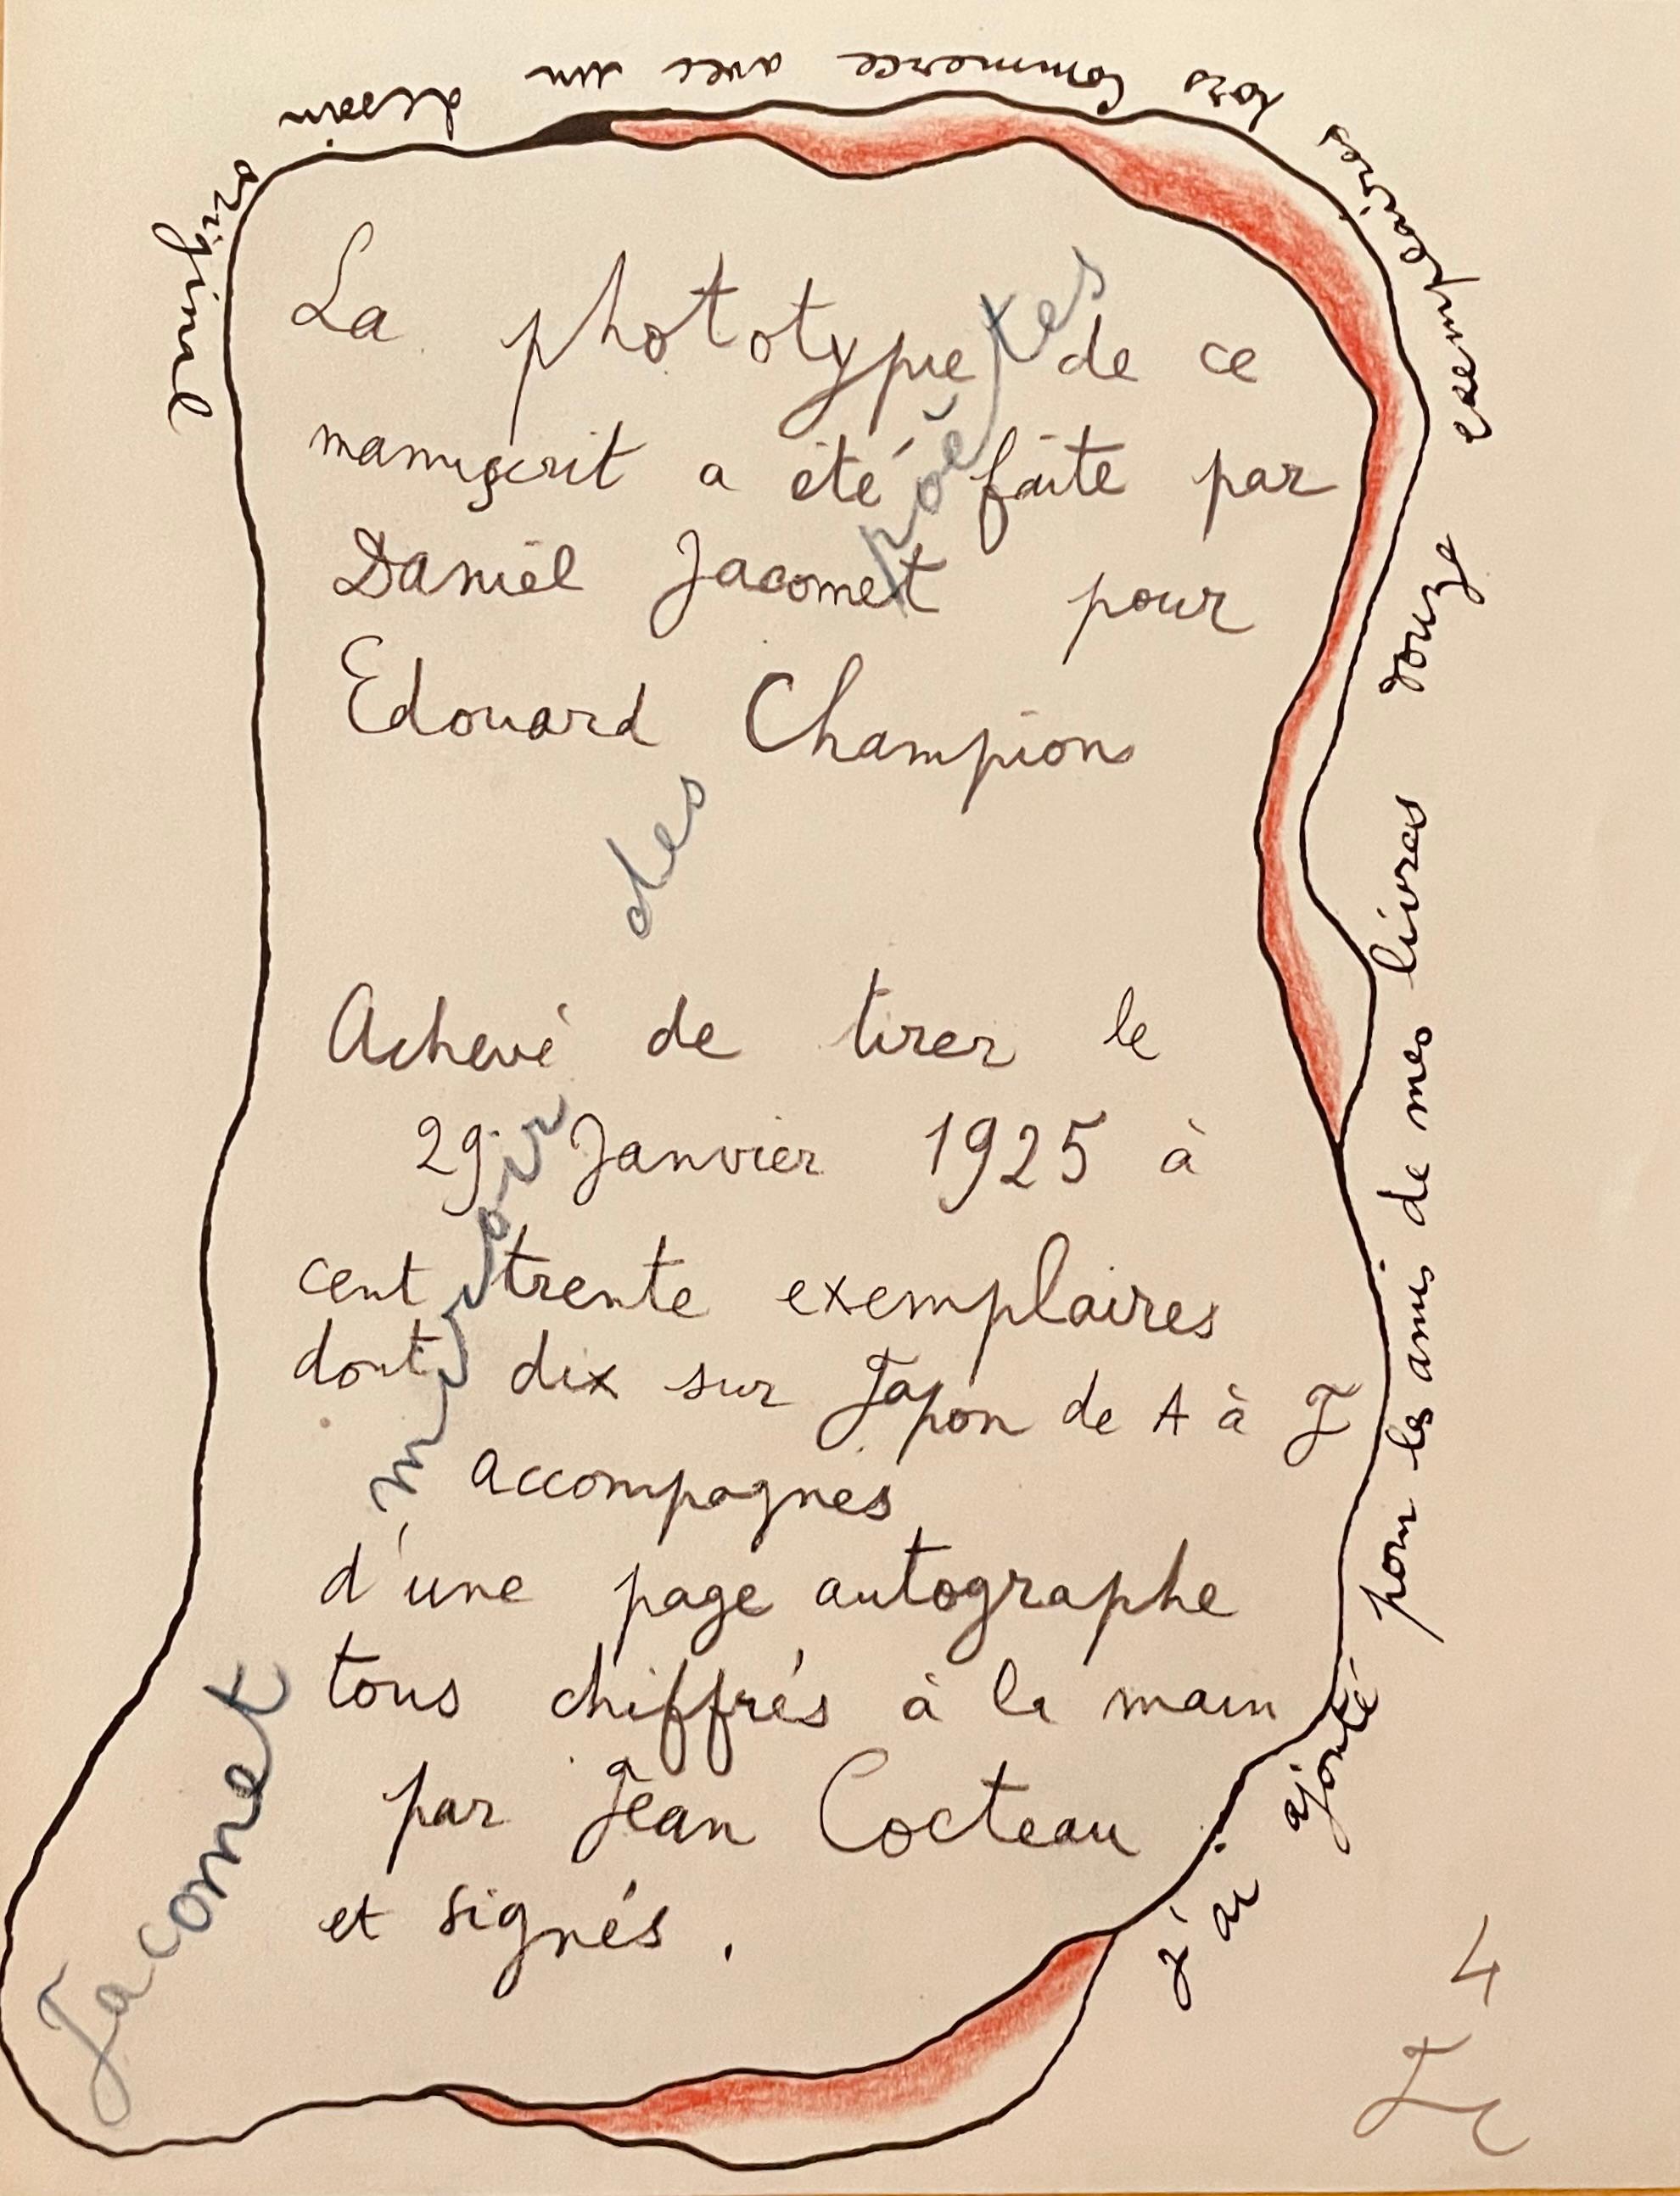 La phototypie de ce
manuscrit a été faite par
Daniel Jacomet pour
Edouard Champion
Achevé de tirer le
29 Janvier 1925 à
cent trente exemplaires
dont dix sur Japon de A à J
accompagnés
d'une page autographe
tous chiffrés à la main
par Jean Cocteau
et signés.
Jacomet miroir des poètes
j'ai ajouté pour les amis de mes livres douze exemplaires hors commerce avec un dessin original
4
JC